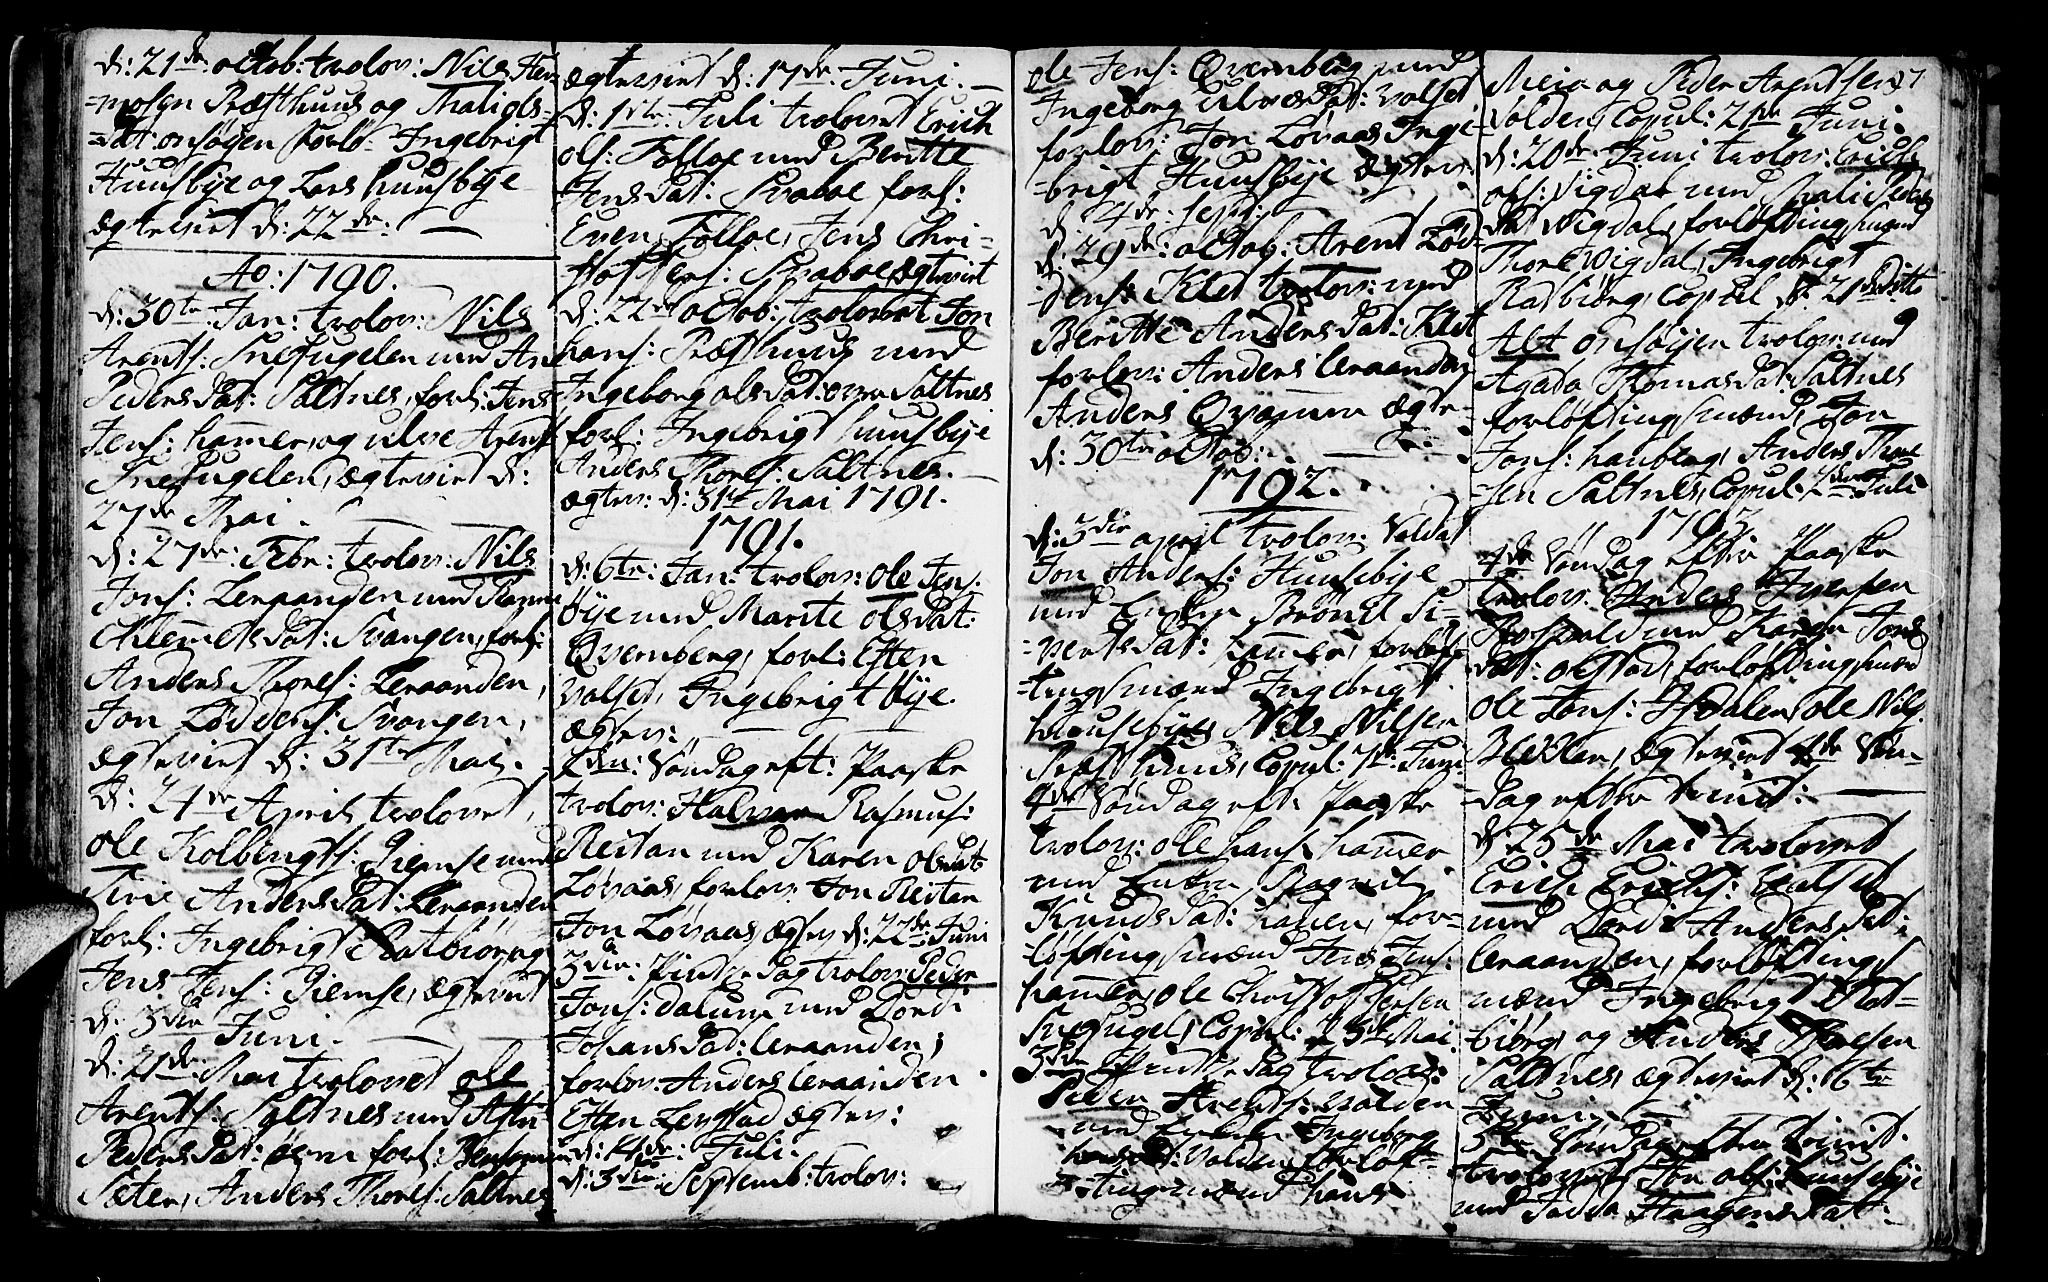 d: 21de: octob: trolov: Nils Hem
-mosøn Præsthuus og Mali ols-
-dat: onsøyen forl: Ingebrigt
Huusbye og Lars huusbye
ægteviet d: 22de: —
Ao: 1790.
d: 30te: Jan: trolov: Nils
Arents: Snefugelen med An
Pedersdat: Saltnes, forl: Jens
Jens: hamer, og ulve Arents
Snefugelen, ægteviet d:
27de Mai. —
d: 27de: Febr: trolov: Nils
Jons: Leraanden med
Clemmetsdat: Svangen, forl:
Anders Thores: Leraanden,
Jon Lodders: Svangen,
ægteviet d: 31te Mai.
d: 24de April trolovet,
ole Kolbengts: Giemse med
Siri Andersdat: Leraanden
forl: Ingebrigt Ratbiørg og
Jens Jens: Giemse, ægteviet
d: 3die Juni. —
d: 21de: Mai trolovet ole
Arents: Saltnes med
Pedersdat: øvre forl: Bentsmoe
Sæter, Anders Thores: Saltnes
ægteviet d: 17de: Juni. —
d: 1ste: Juli trolovet Erich
ols: Folloe med Beritte
Jensdat: Svaboe forl:
Even Folloe, Jens Chri-
stof Jens: Svaboe, ægteviet
d: 22de octob: trolovet Jon
hans: Præsthuus med
Ingeborg olsdat: øvre Saltnes
forl: Ingebrigt huusbye
Anders Thores: Saltnes. —
ægtev: d: 31te Mai 1791.
1791.
d: 6te: Jan: trolov: ole Jens:
bye med Marite olsdat:
Qvernberg, forl: Esten
Valset, Ingebrigt bye.
ægtev: —
2den: Søndag eft: Paaske
trolov: Halvor Rasmus:
Reitan med Karen olsdat:
Løvaas, forlov: Jon Reitan
Jon Løvaas, ægtev d: 22de Juni
3die: Pintzedag trolov: Peder
Jons: dalum med Dordi
Johansdat: Leraanden,
forlov: Anders Leraanden.
Esten Leystad ægtev:
d: 14de: Juli.
d: 3die: Septemb: trolov:
ole Jens: Qvernberg med
Ingeborg Ulvesdat: Valset
forlov: Jon Løvaas, Inge-
-brigt Huusbye ægtev:
d: 4de: Sept:
d: 29de: octob: Arent Lod-
-dens: Klet trolov: med
Beritte Andersdat: Klet
forlov: Anders Leraanden,
Anders Qvamme ægte-
d: 30te octob: —
1792.
d: 3die april trolov: Soldat
Jon Anders: Huusebye
med Enken Brønel Si-
-vertsdat: hamer, forløf-
-tingsmænd Ingebrigt
huusebye, Nils Nilsen
Præsthuus, Copul: 7de: Juni
4de Søndag eft: Paaske
trolov: ole hans: hamer
med Enken Ragnild
Knudsdat: hauen, for-
løftingsmænd Jens Jens:
hamer, ole Christoffersen
Snefugel, Copul: d 31te Mai.
3die Pintzedag trolov:
Peder Arents: Volden
med Enken Ingeborg
hansdat: Volden, forløf-
-tingsmænd hans
Meia og Peder Arentsen 27
Volden, Copul: 21de Juni.
d: 20de: Juni trolov: Erich
ols: Vigdal med Mali Peders
dat Wigdal, forløftingsmænd
Thore Wigdal, Ingebrigt
Radbiørg, Copul d: 21de ditto
Alt onsøyen trolov: med
Agada Thomasdat: Saltnes
forløftingsmænd, Jon
Jons: hauberg, Anders Thore
-sen Saltnes, Copul: 7de: Juli
1793
4de Søndag efter Paaske
trolov: Anders Iversen
med Karen Jons
dat: olstad, forløftingsmænd
ole Jons: Ysdalen, ole Nils:
ægteviet 4de Søn-
-dag efter trinit: —
d: 25de Mai trolovet
Erich Erichs: Valset
med Dordi Andersdat:
Leraanden, forløftings
mænd Ingebrigt Rat-
biørg, og Anders Thoresen
Saltnes, ægteviet d: 6te
Juni. —
5te Søndag efter trinit.
trolovet Jon ols: huusebye
med Haagensdat: